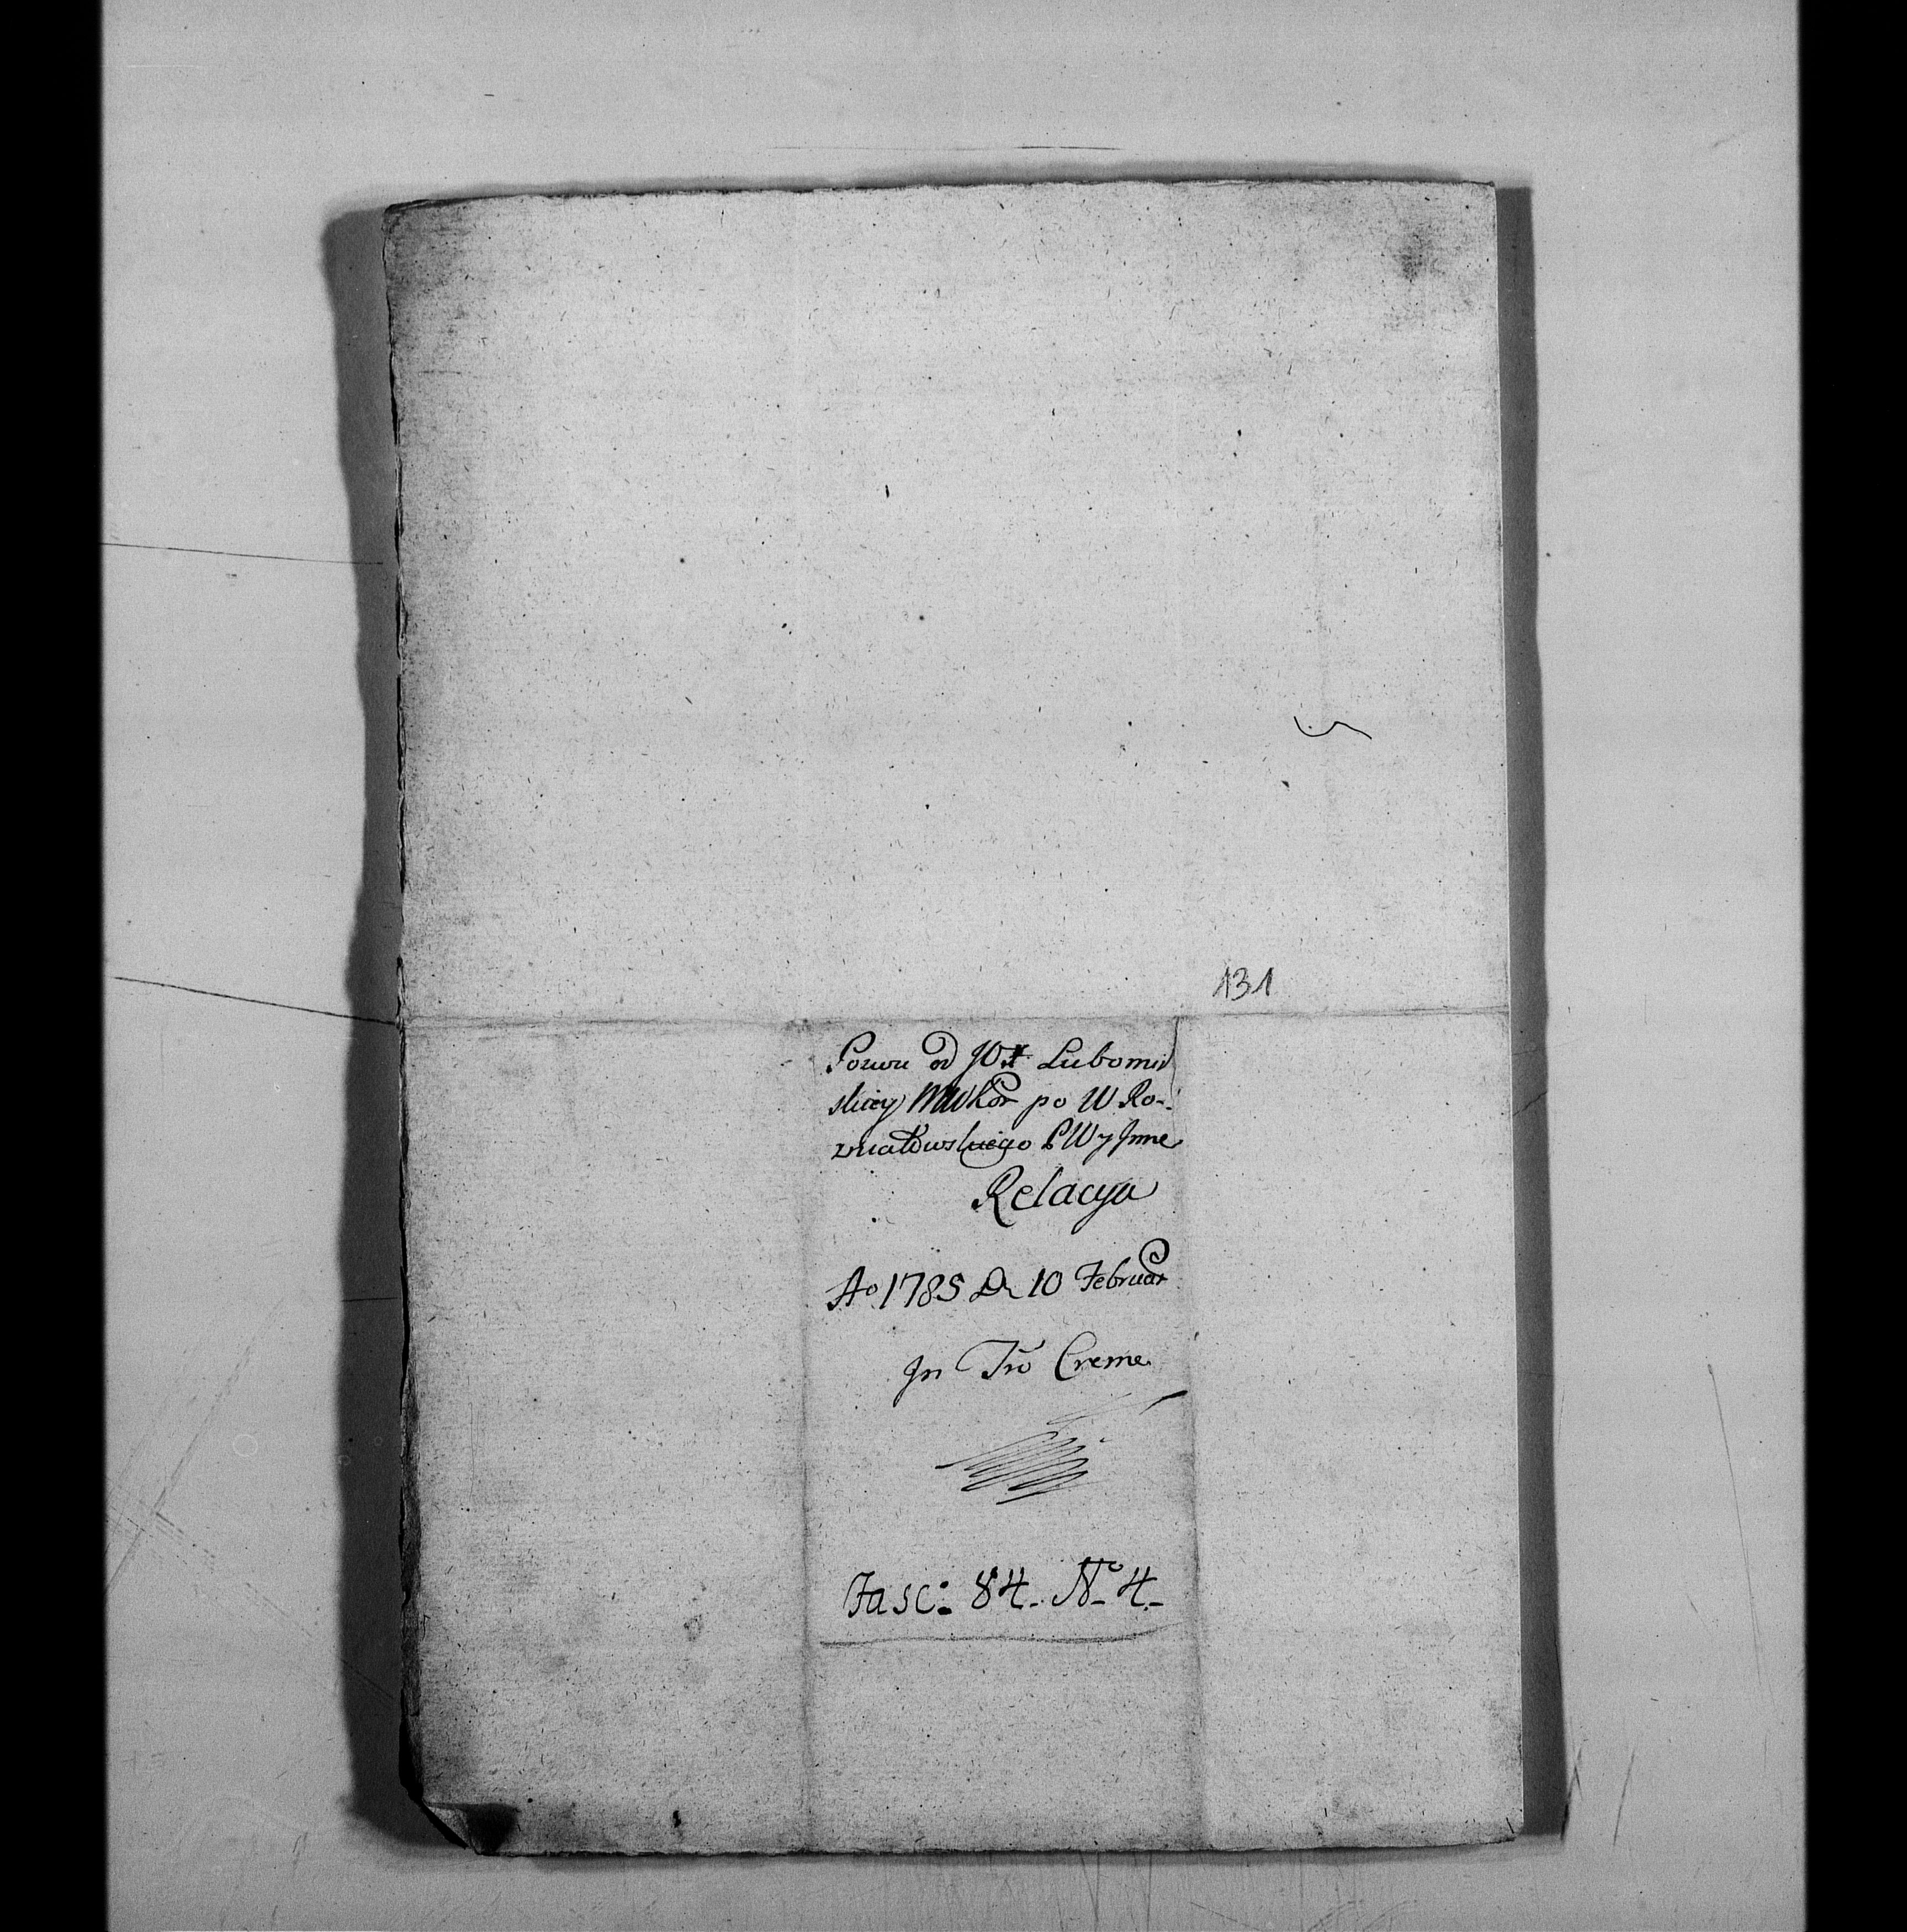 131
Pozwu od JO X Lubomir
skiey MWKor po W Ro-
zwadowskiego PW y Inne
Relacya
Ao 1785 D 10 Februar
In Tro Creme
Fasc: 84. No 4.